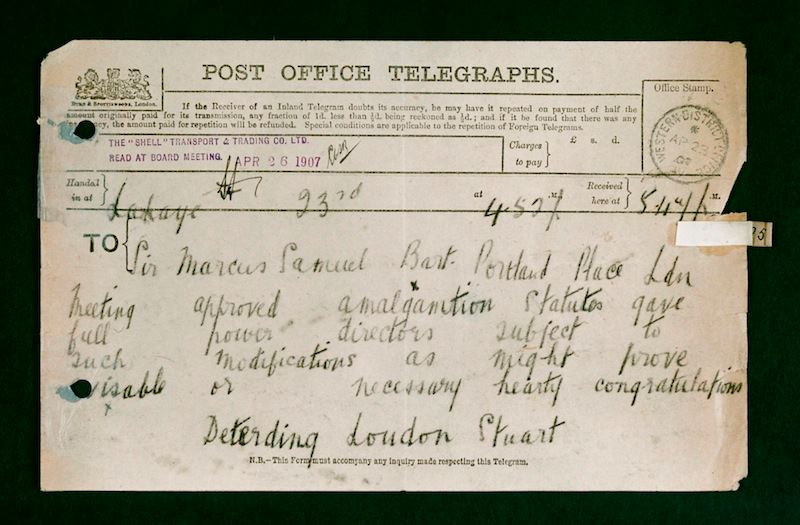 POST OFFICE TELEGRAPHS.
Office Stamp.
If the Receiver of an Inland Telegram doubts its accuracy, he may have it repeated on payment of half the
amount originally paid for its transmission, any fraction of 1d. less than ½d. being reckoned as ½d.; and if it be found that there was any
the amount paid for repetition will be refunded. Special conditions are applicable to the repetition of Foreign Telegrams.
THE "SHELL" TRANSPORT & TRADING CO. LTD.
READ AT BOARD MEETING. APR 26 1907
Charges to pay £ s. d.
WESTERN DISTRICT OFFICE AP 23 07
Handed in at Lahaye 23rd at 4.52 P.M. Received here at P.M.
TO
Sir Marcus Samuel Bart. Portland Place Ldn
Meeting approved amalgamtion Statutes gave
full power directors subject to
such modifications as might prove
visable or necessary hearty congratulations
Deterding Loudon Stuart
N.B.—This Form must accompany any inquiry made respecting this Telegram.